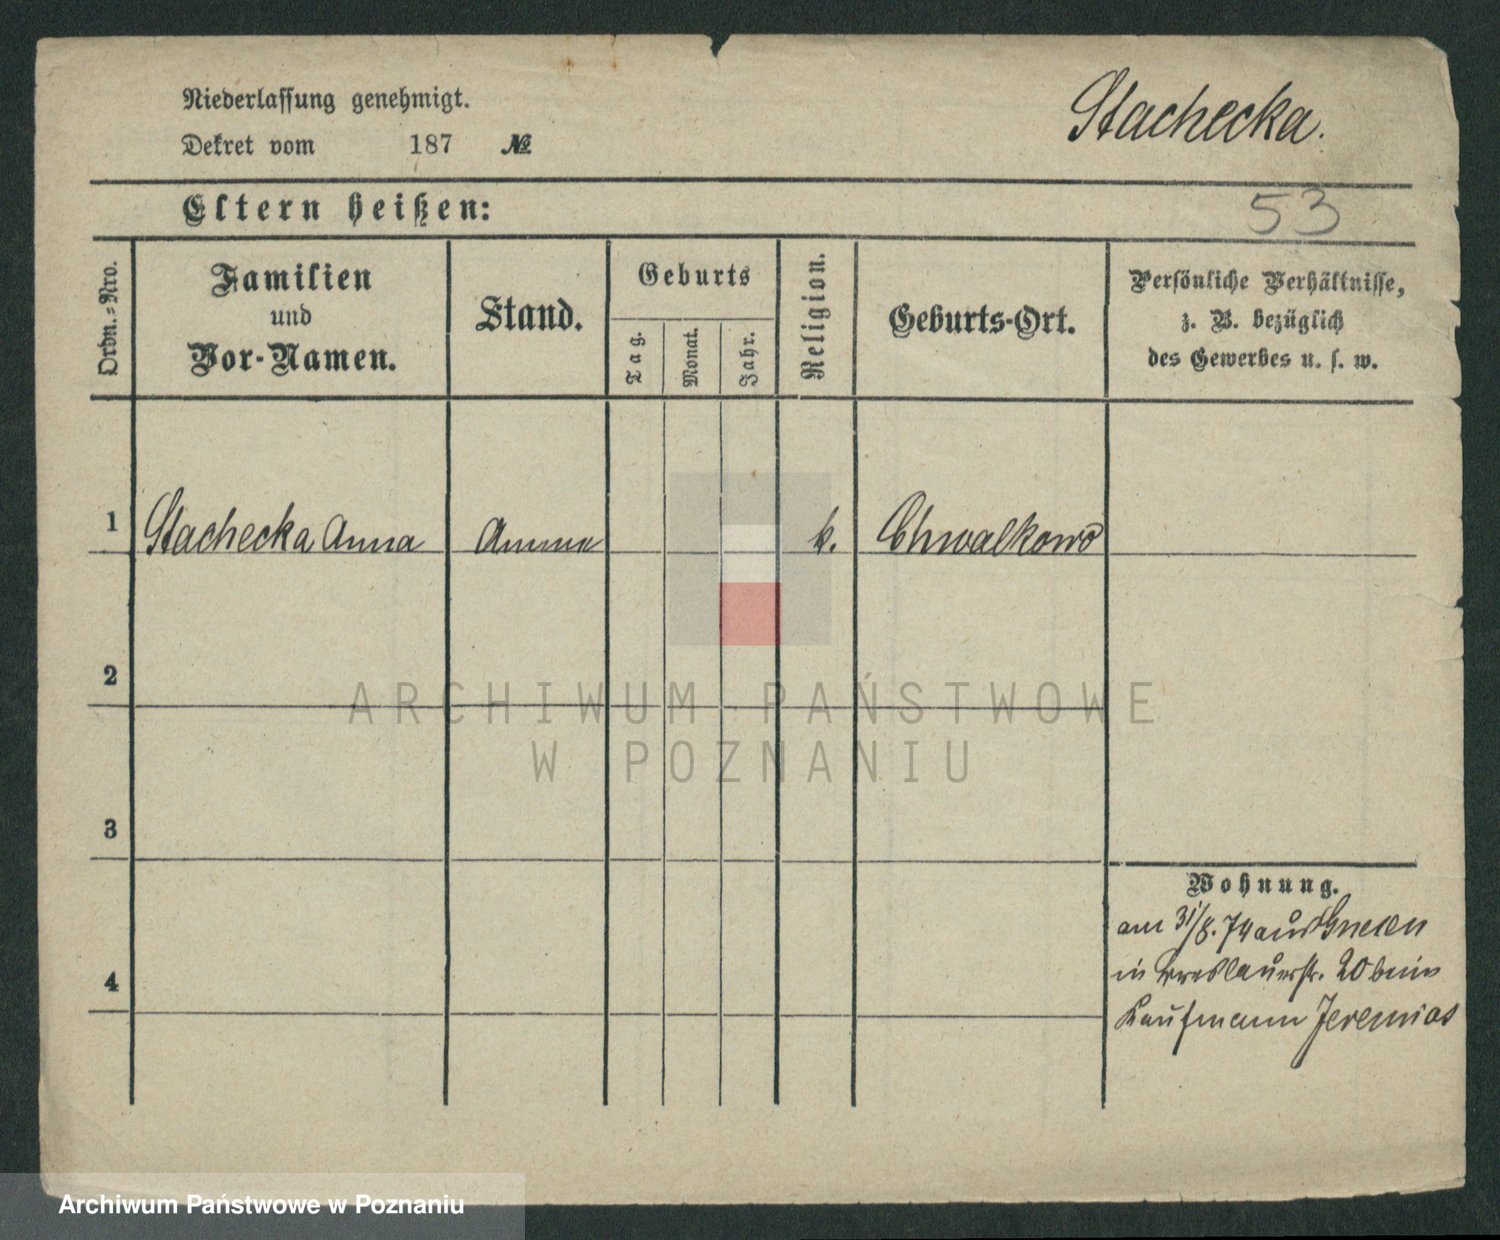 Niederlassung genehmigt.
Stachecka.
Dekret vom 187 №
Eltern heißen:
53
Ordn.-Nro.
Familien
und
Vor-Namen.
Stand.
Geburts
Tag.
Monat.
Jahr.
Religion.
Geburts-Ort.
Persönliche Verhältnisse,
z. B. bezüglich
des Gewerbes u. s. w.
1 Stachecka Anna Amme k. Chwalkowo
2
ARCHIWUM PAŃSTWOWE
W POZNANIU
3
Wohnung.
am 31/8. 74 aus Gnesen
in Breslauerstr. 20 beim
Kaufmann Jeremias
4
Archiwum Państwowe w Poznaniu